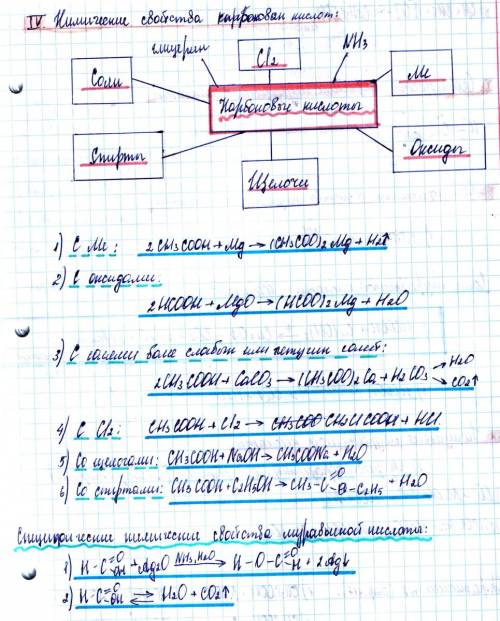 IV Химические свойства карбонован кислот:
глицерин
Cl2
NH3
Соли
Ме
Карбоновые кислоты
Спирты
Оксиды
Щелочи
1) С Ме: 2CH3COOH + Mg → (CH3COO)2Mg + H2↑
2) С оксидами:
2HCOOH + MgO → (HCOO)2Mg + H2O
3) С солями более слабых или летучих солей:
2CH3COOH + CaCO3 → (CH3COO)2Ca + H2CO3 → H2O
→ CO2↑
4) С Cl2: CH3COOH + Cl2 → CH2ClCOOH + HCl
5) Со щелочами: CH3COOH + NaOH → CH3COONa + H2O
6) Со спиртами: CH3COOH + C2H5OH → CH3-C(=O)-O-C2H5 + H2O
Специфические химические свойства муравьиной кислоты:
1) H-C(=O)OH + Ag2O NH3, H2O → H-O-C(=O)H + 2Ag↓
2) H-C(=O)OH ⇄ H2O + CO2↑